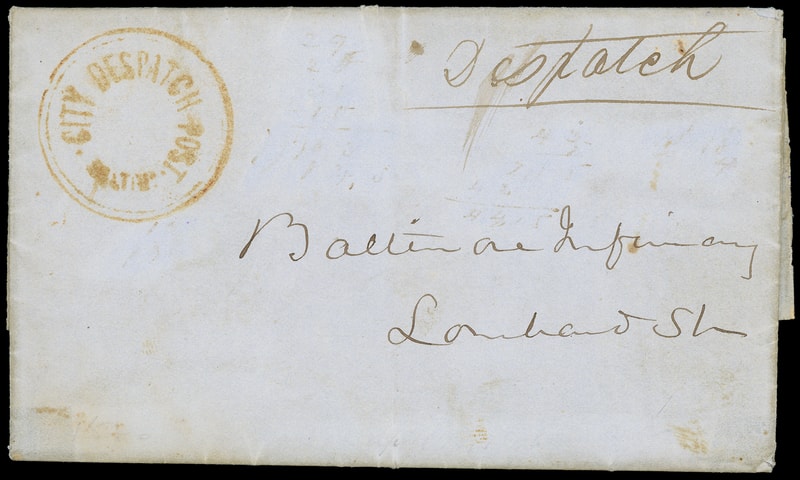 CITY DESPATCH POST.
BALTIM
Despatch
Baltimore Infirmary
Lombard St